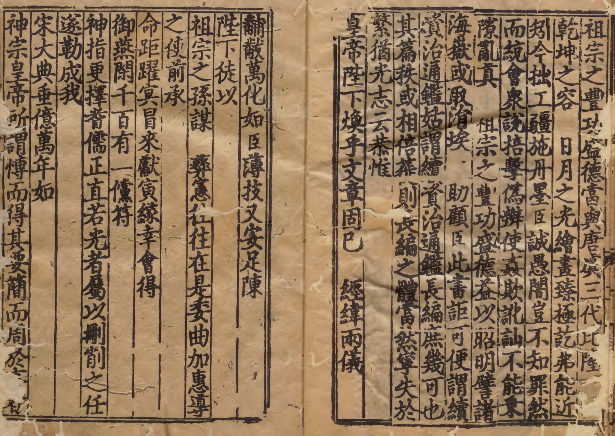 祖宗之豐功盛德當與唐虞三代比隆
乾坤之容　日月之光繪畫臻極乾弗能近
矧今拙工疆施丹墨臣誠愚闇豈不知罪然
而統會衆說掊擊僞辨使姦欺訛訕不能乗
隙亂真　祖宗之豐功盛德益以昭明譬諸
海嶽或取涓埃　助顧臣此書詎可便謂續
資治通鑑姑謂續　資治通鑑長編庶幾可也
其篇秩或相倍蓰　則長編之體當然寧失於
繁猶光志云　恭惟
皇帝陛下煥乎文章固已　經緯兩儀
黼黻萬化如臣薄技又安足陳
陛下徒以
祖宗之孫謀　彛憲往往在是委曲加惠導
之使前承
命距躍冥冒來獻寅緣幸會得
御燕閒千百有一儻符
神指更擇耆儒正直若光者屬以刪削之任
遂勒成我
宋大典垂億萬年如
神宗皇帝所謂博而得其要簡而周於